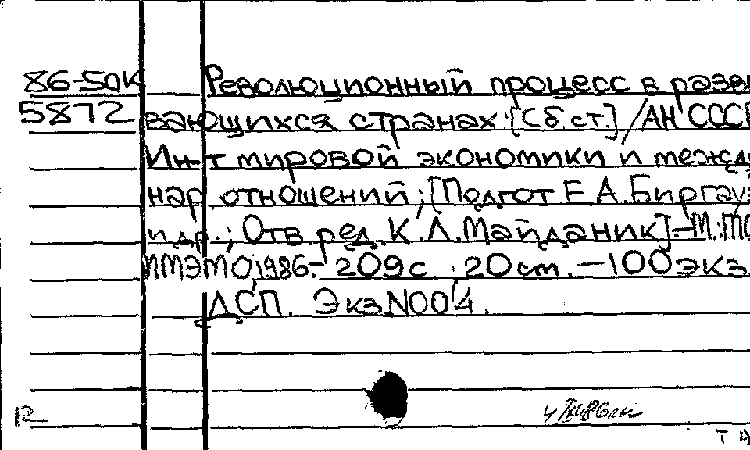 86-50К Революционный процесс в разви
5872 вающихся странах: [Сб.ст.] / АН СССР
Ин-т мировой экономики и между
нар отношений; [Подгот Е.А.Биргауз
и др.; Отв.ред. К.Л.Майданик]-М:
ИМЭМО, 1986.- 209с; 20см.-100экз
ДСП. Экз.N004.
12
T 4